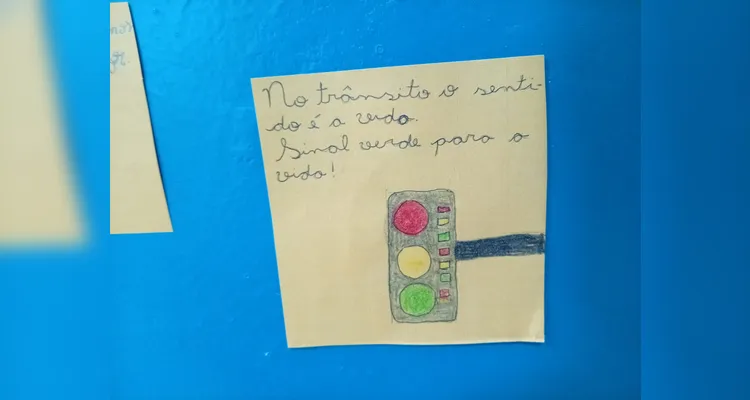 No trânsito o senti-
do é a vida.
Sinal verde para a
vida!